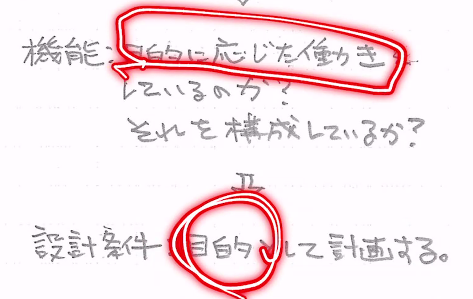 機能:目的に応じた働きを
しているのか?
それを構成しているか?
設計条件:目的として計画する。